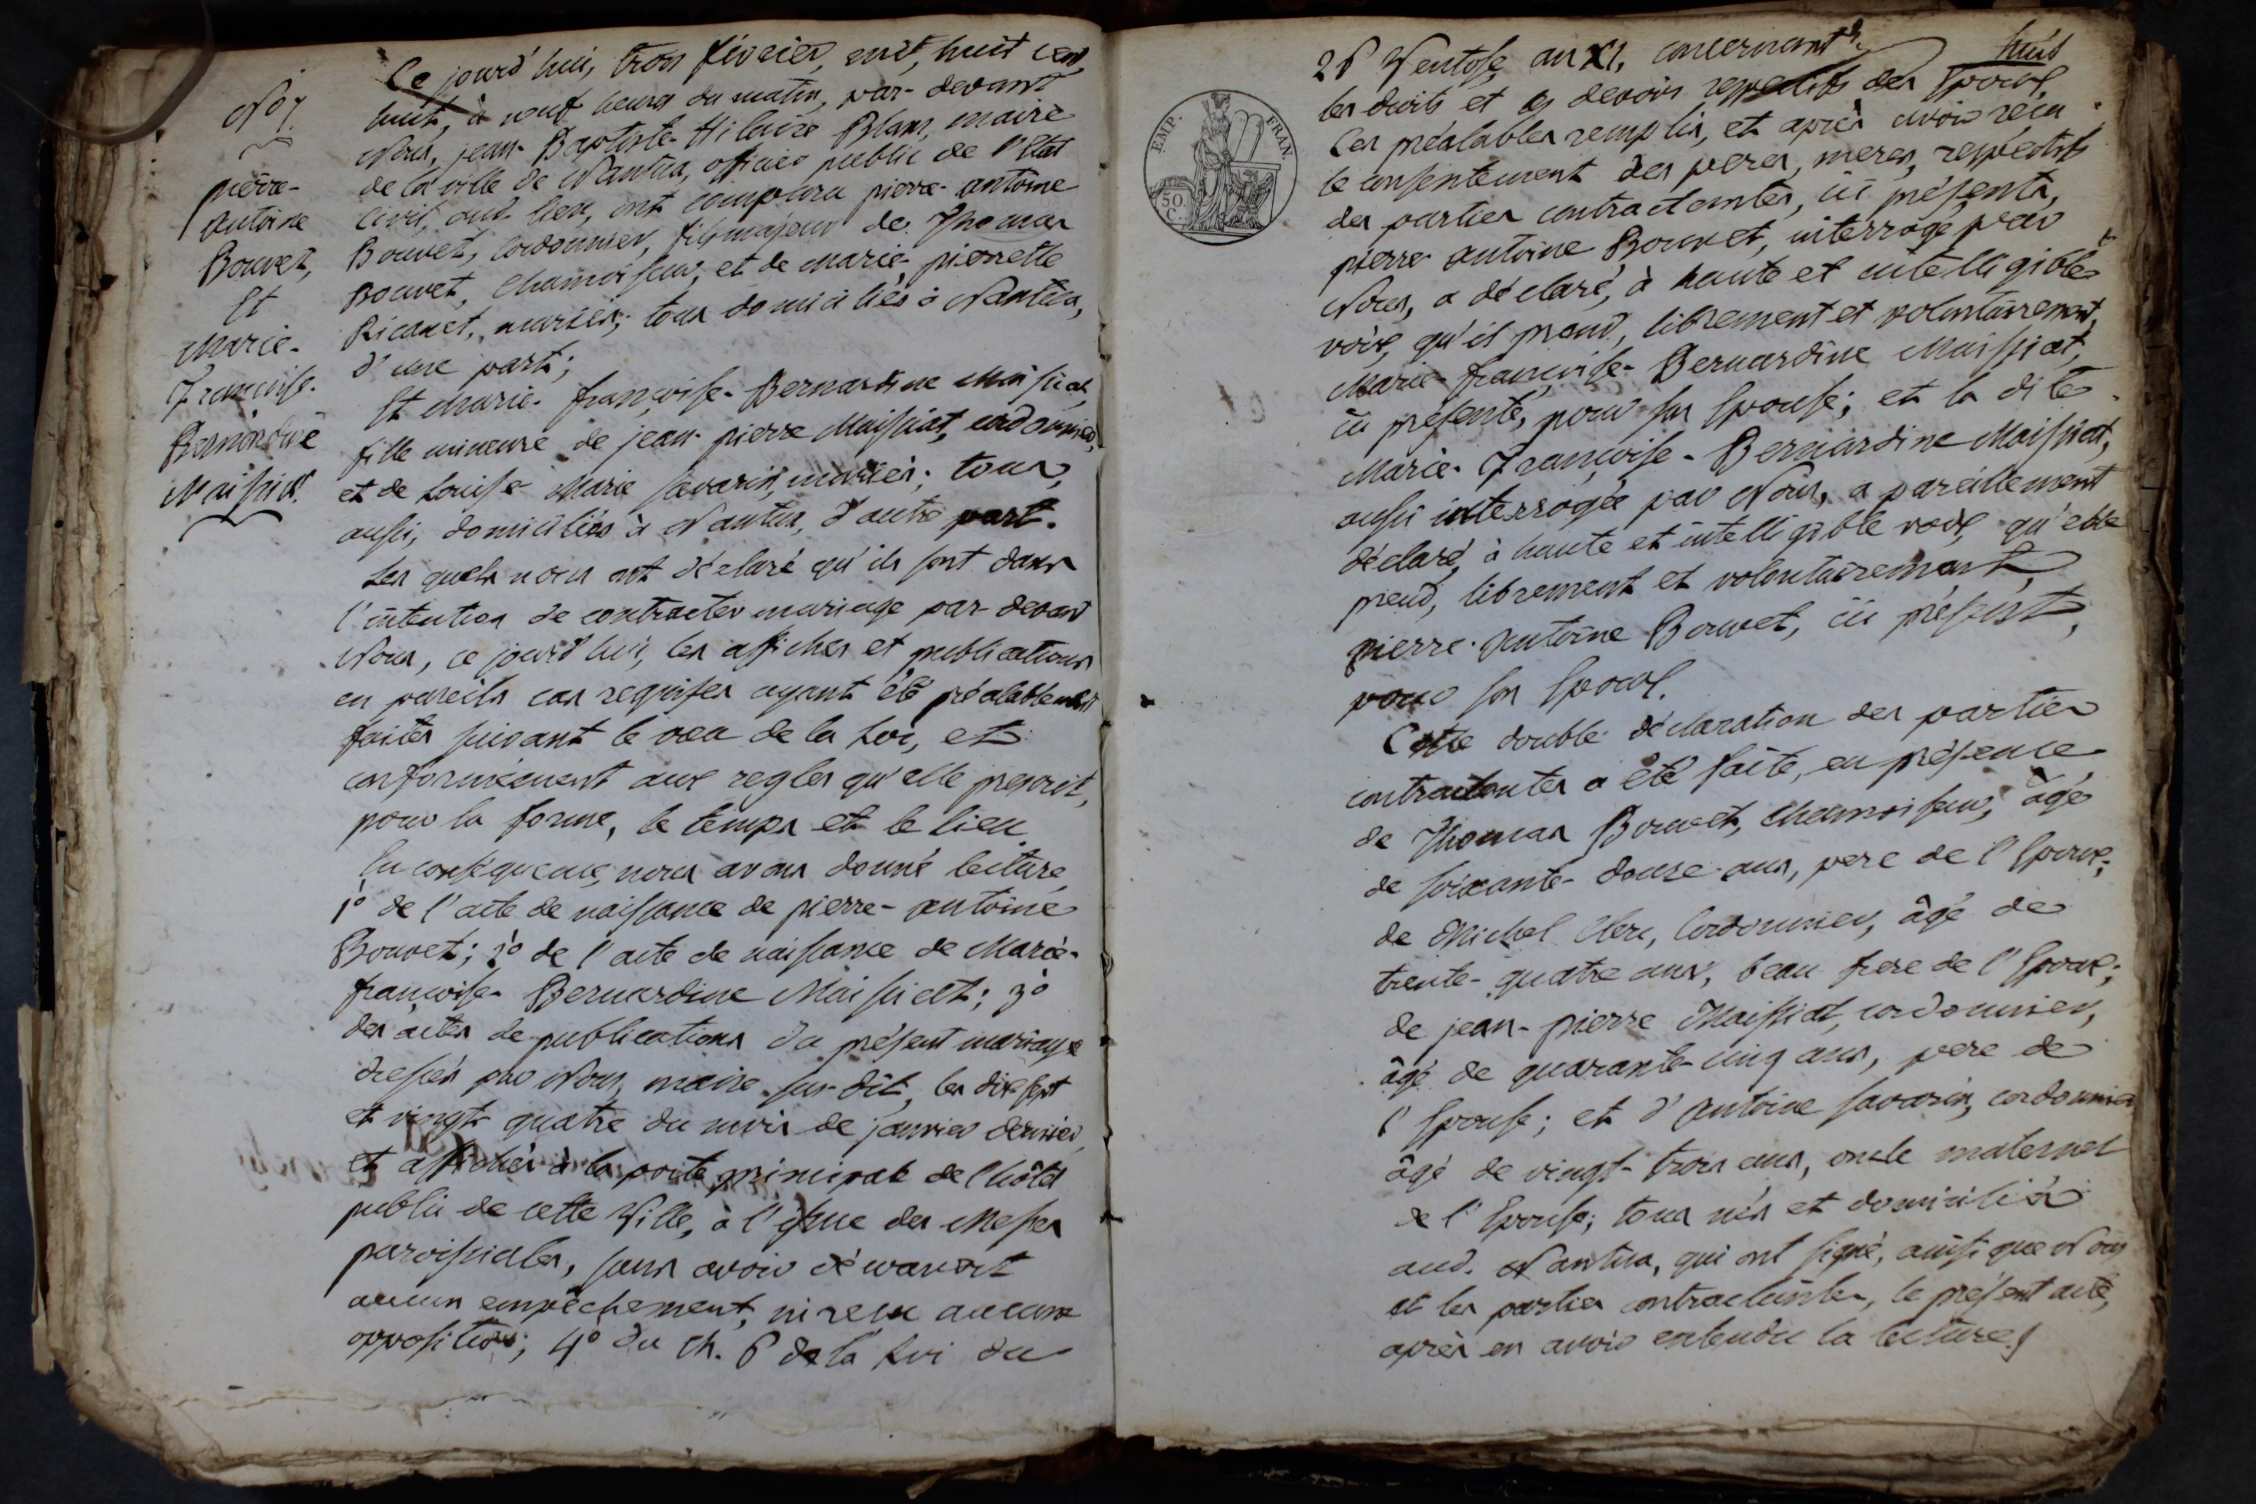 N.° 7.
pierre-
Antoine
Bouvet,
Et
Marie-
Françoise-
Bernardine
Maissiat.
Ce jourd'hui, trois février, mil, huit cent
huit, à neuf heures du matin, par-devant
Nous, jean-Baptiste-Hilaire Blanc, maire
de la ville de Nantua, officier public de l'Etat
Civil, aud. lieu, ont comparu pierre-antoine
Bouvet, Cordonnier, fils majeur de Thomas
Bouvet, Chamoiseur, et de Marie-pierrette
Ricanet, mariés; tous domiciliés à Nantua,
d'une part;
Et Marie-françoise-Bernardine Maissiat,
fille mineure de jean-pierre Maissiat, cordonnier,
et de Louise-Marie Savarin, mariés; tous,
aussi, domiciliés à Nantua, d'autre part.
Les quels nous ont déclaré qu'ils sont dans
l'intention de contracter mariage par-devant
Nous, ce jourd'hui, les affiches et publications
en pareils cas requises ayant été préalablement
faites suivant le vœu de la Loi, et
conformément aux regles qu'elle prescrit,
pour la forme, le temps et le lieu.
En conséquence, nous avons donné lecture,
1° de l'acte de naissance de pierre-antoine
Bouvet; 2° de l'acte de naissance de Marie-
françoise-Bernardine Maissiat; 3°
des actes de publications du présent mariage
dressés par Nous, maire sus-dit, les dix-sept
et vingt-quatre du mois de janvier dernier,
et affichés à la porte principale de l'hôtel
public de cette Ville, à l'issue des Messes
paroissiales, sans avoir découvert
aucun empêchement, ni reçu aucune
opposition; 4° du Ch. 6 de la Loi du
huit
26 Ventose an XI, concernant
les droits et les devoirs respectifs des Epoux.
Ces préalables remplis, et après avoir reçu
le consentement des peres, meres, respectifs
des parties contractantes, ici présents,
pierre-antoine Bouvet, interrogé par
Nous, a déclaré, à haute et intelligible
voix, qu'il prend, librement et volontairement,
Marie-françoise-Bernardine Maissiat,
ici présente, pour son Epouse; et la dite
Marie-Françoise-Bernardine Maissiat,
aussi interrogée par Nous, a pareillement
déclaré, à haute et intelligible voix, qu'elle
prend, librement et volontairement,
pierre-Antoine Bouvet, ici présent,
pour son Epoux.
Cette double déclaration des parties
contractantes a été faite, en présence
de Thomas Bouvet, chamoiseur, âgé
de soixante-douze ans, pere de l'Epoux;
de Michel Clerc, Cordonnier, âgé de
trente-quatre ans, beau frere de l'Epoux;
de jean-pierre Maissiat, cordonnier,
âgé de quarante-cinq ans, pere de
l'Epouse; et d'Antoine Savarin, cordonnier
âgé de vingt-trois ans, oncle maternel
de l'Epouse; tous nés et domiciliés
aud. Nantua, qui ont signé, ainsi que Nous
et les parties contractantes, le présent acte,
après en avoir entendu la lecture.
EMP. FRAN.
50
C.